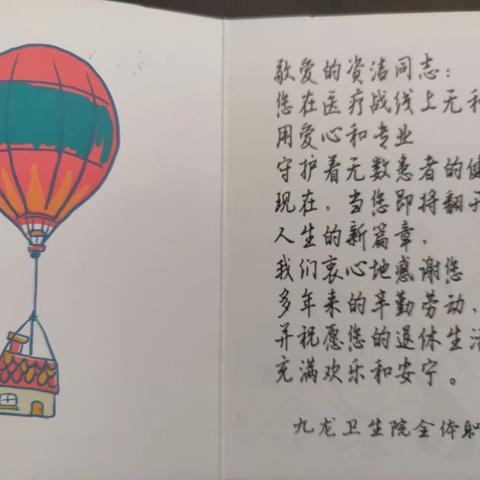 敬爱的资洁同志：
您在医疗战线上无
用爱心和专业
守护着无数患者的
现在，当您即将翻
人生的新篇章，
我们衷心地感谢您
多年来的辛勤劳动，
并祝愿您的退休生活
充满欢乐和安宁。
九龙卫生院全体